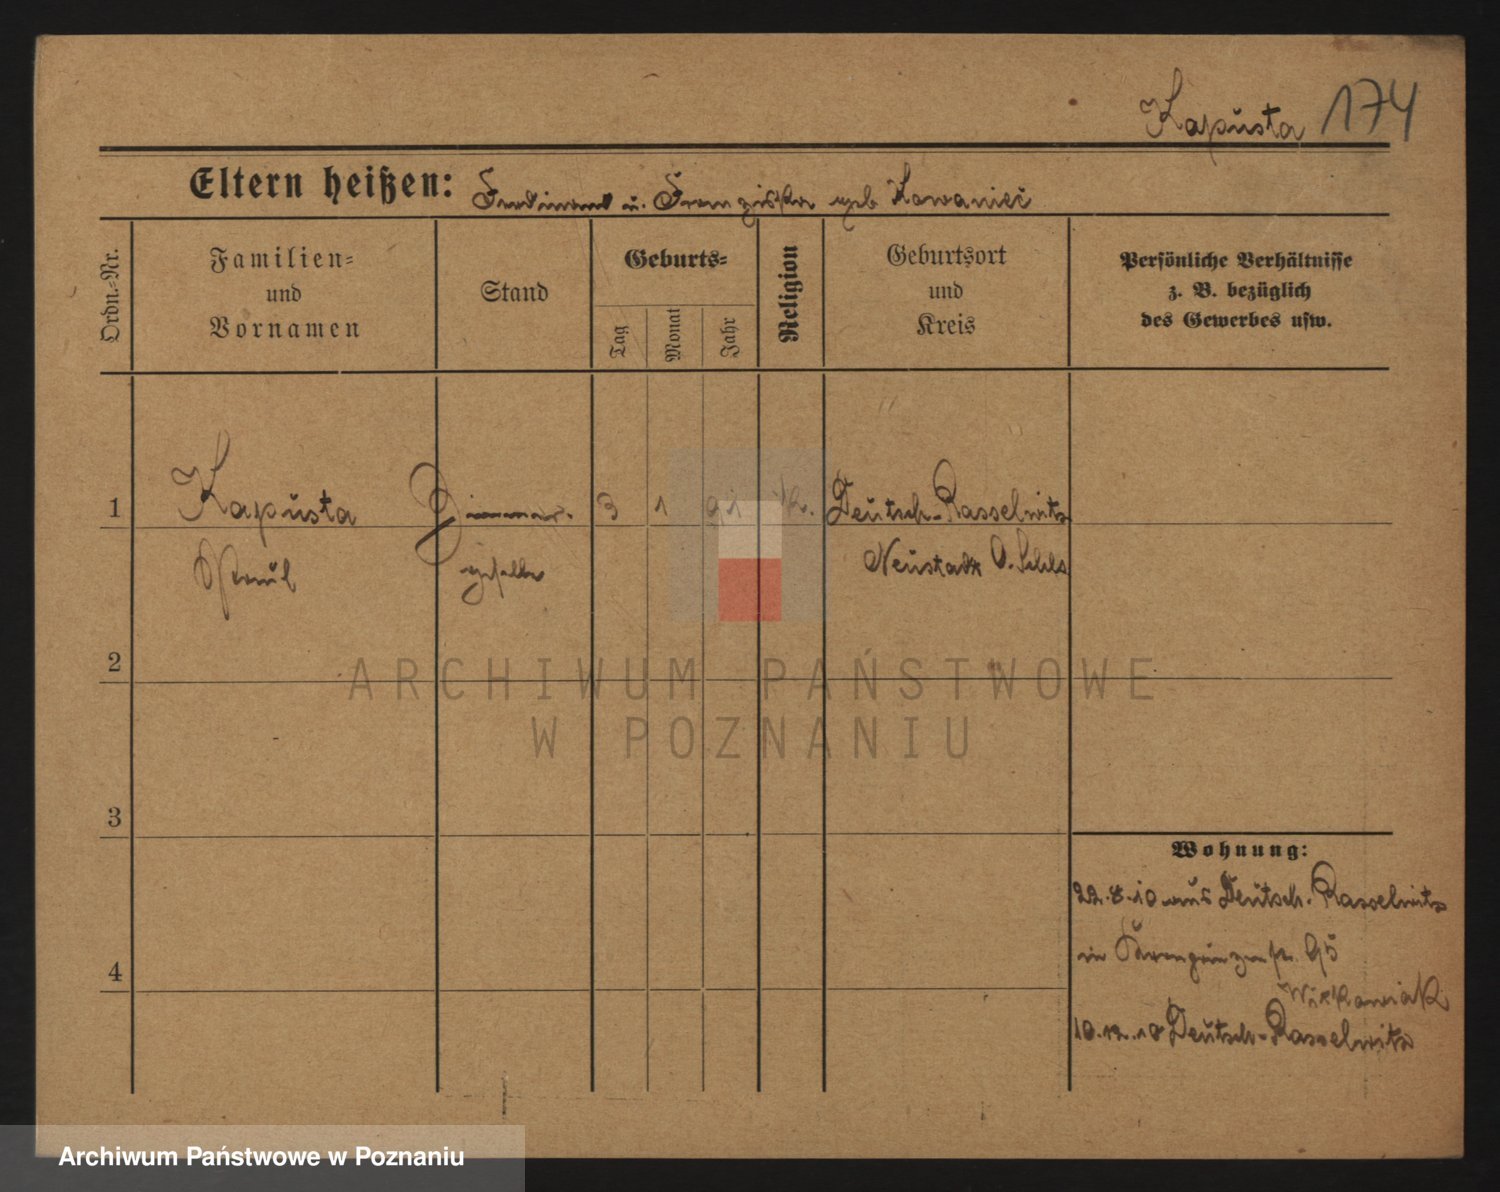 Kapusta 174
Eltern heißen: Ferdinand u. Franziska geb Kowaniec
Ordn.-Nr.
Familien- und Vornamen
Stand
Geburts-
Tag
Monat
Jahr
Religion
Geburtsort und Kreis
Persönliche Verhältnisse
z. B. bezüglich
des Gewerbes usw.
1 Kapusta Zimmer- 3 1 91 k. Deutsch-Rasselwitz
Paul geselle Neustadt O. Schls
2
ARCHIWUM PAŃSTWOWE
W POZNANIU
3
Wohnung:
22.8.10 aus Deutsch-Rasselwitz
4
in Kronprinzenstr. 95
10.12.10 Deutsch-Rasselwitz
Archiwum Państwowe w Poznaniu